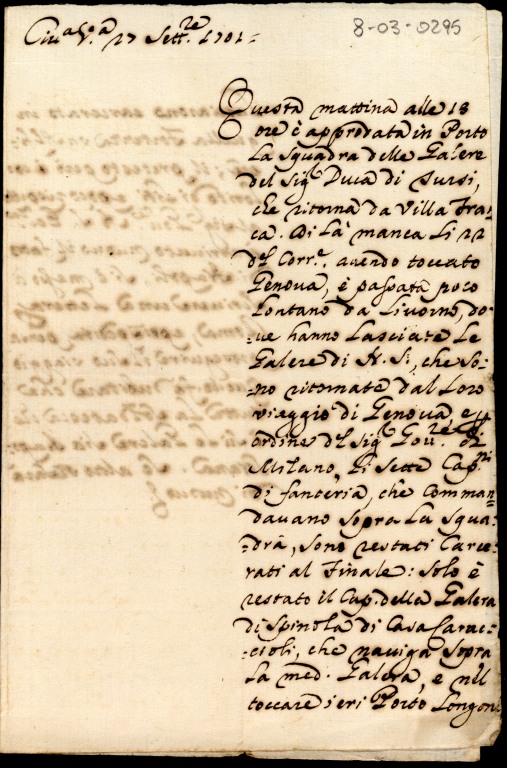 8-03-0295
Ciu.ª V.ª 27 Sett.re 1701=
Questa mattina alle 18
ore è approdata in Porto
La Squadra delle Galere
del Sig.r Duca di Tursi,
che ritorna da Villa Fran=
ca. Di Là manca Li 22
del Corr.e, auendo toccato
Genoua, è passata poco
Lontano da Liuorno, do=
=ue hanno Lasciate Le
Galere di N. S., che so=
=no ritornate dal Loro
viaggio di Genoua, e
ordine del Sig.r Gou.re di
Milano, Li sette Cap.ni
di fanteria, che Comman=
dauano sopra La Squa=
=dra, sono restati Carce=
rati al Finale: Solo è
restato il Cap. della Galera
di Spinola di Casa Carac=
=cioli, che nauiga sopra
La med. Galera, e nel
toccare ieri Porto Longone